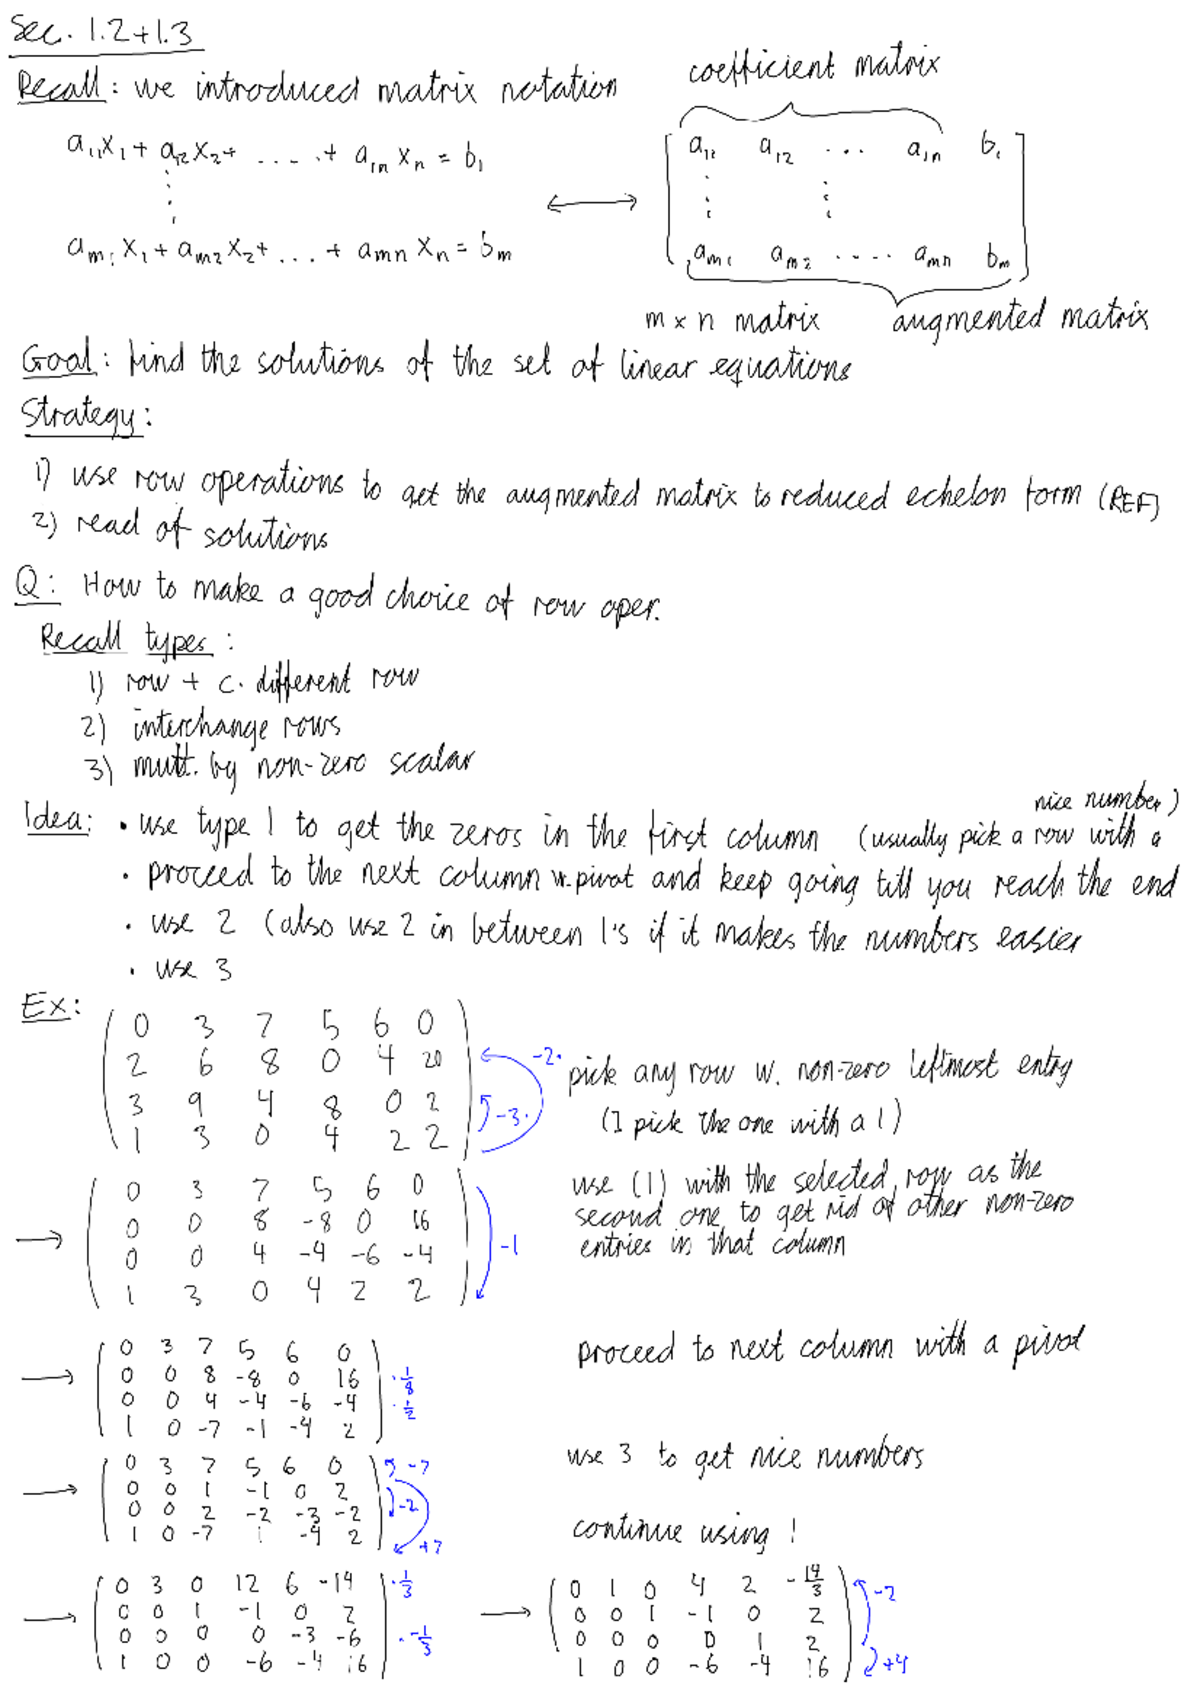 Sec. 1.2+1.3
Recall: we introduced matrix notation
coefficient matrix
a₁₁x₁ + a₁₂x₂ + ..... + a₁ₙxₙ = b₁
⋮
aₘ₁x₁ + aₘ₂x₂ + ... + aₘₙxₙ = bₘ
⟷
[ a₁₁ a₁₂ ... a₁ₙ b₁ ]
⋮ ⋮
[ aₘ₁ aₘ₂ ..... aₘₙ bₘ ]
m × n matrix augmented matrix
Goal: find the solutions of the set of linear equations
Strategy:
1) use row operations to get the augmented matrix to reduced echelon form (REF)
2) read of solutions
Q: How to make a good choice of row oper.
Recall types:
1) row + c. different row
2) interchange rows
3) mult. by non-zero scalar
Idea: • use type 1 to get the zeros in the first column (usually pick a row with a
nice number)
• proceed to the next column w. pivot and keep going till you reach the end
• use 2 (also use 2 in between 1's if it makes the numbers easier
• use 3
Ex:
0 3 7 5 6 0
2 6 8 0 4 20 -2·
3 9 4 8 0 2 -3·
1 3 0 4 2 2
pick any row w. non-zero leftmost entry
(I pick the one with a 1)
→
0 3 7 5 6 0
0 0 8 -8 0 16
0 0 4 -4 -6 -4 -1
1 3 0 4 2 2
use (1) with the selected row as the
second one to get rid of other non-zero
entries in that column
→
0 3 7 5 6 0
0 0 8 -8 0 16 ·1/8
0 0 4 -4 -6 -4 ·1/2
1 0 -7 -1 -4 2
proceed to next column with a pivot
→
0 3 7 5 6 0 -7
0 0 1 -1 0 2
0 0 2 -2 -3 -2 -2
1 0 -7 -4 2 +7
use 3 to get nice numbers
continue using 1
→
0 3 0 12 6 -14 ·1/3
0 0 1 -1 0 2
0 0 0 0 -3 -6 ·-1/3
1 0 0 -6 -4 16
→
0 1 0 4 2 -14/3 -2
0 0 1 -1 0 2
0 0 0 0 1 2
1 0 0 -6 -4 16 +4